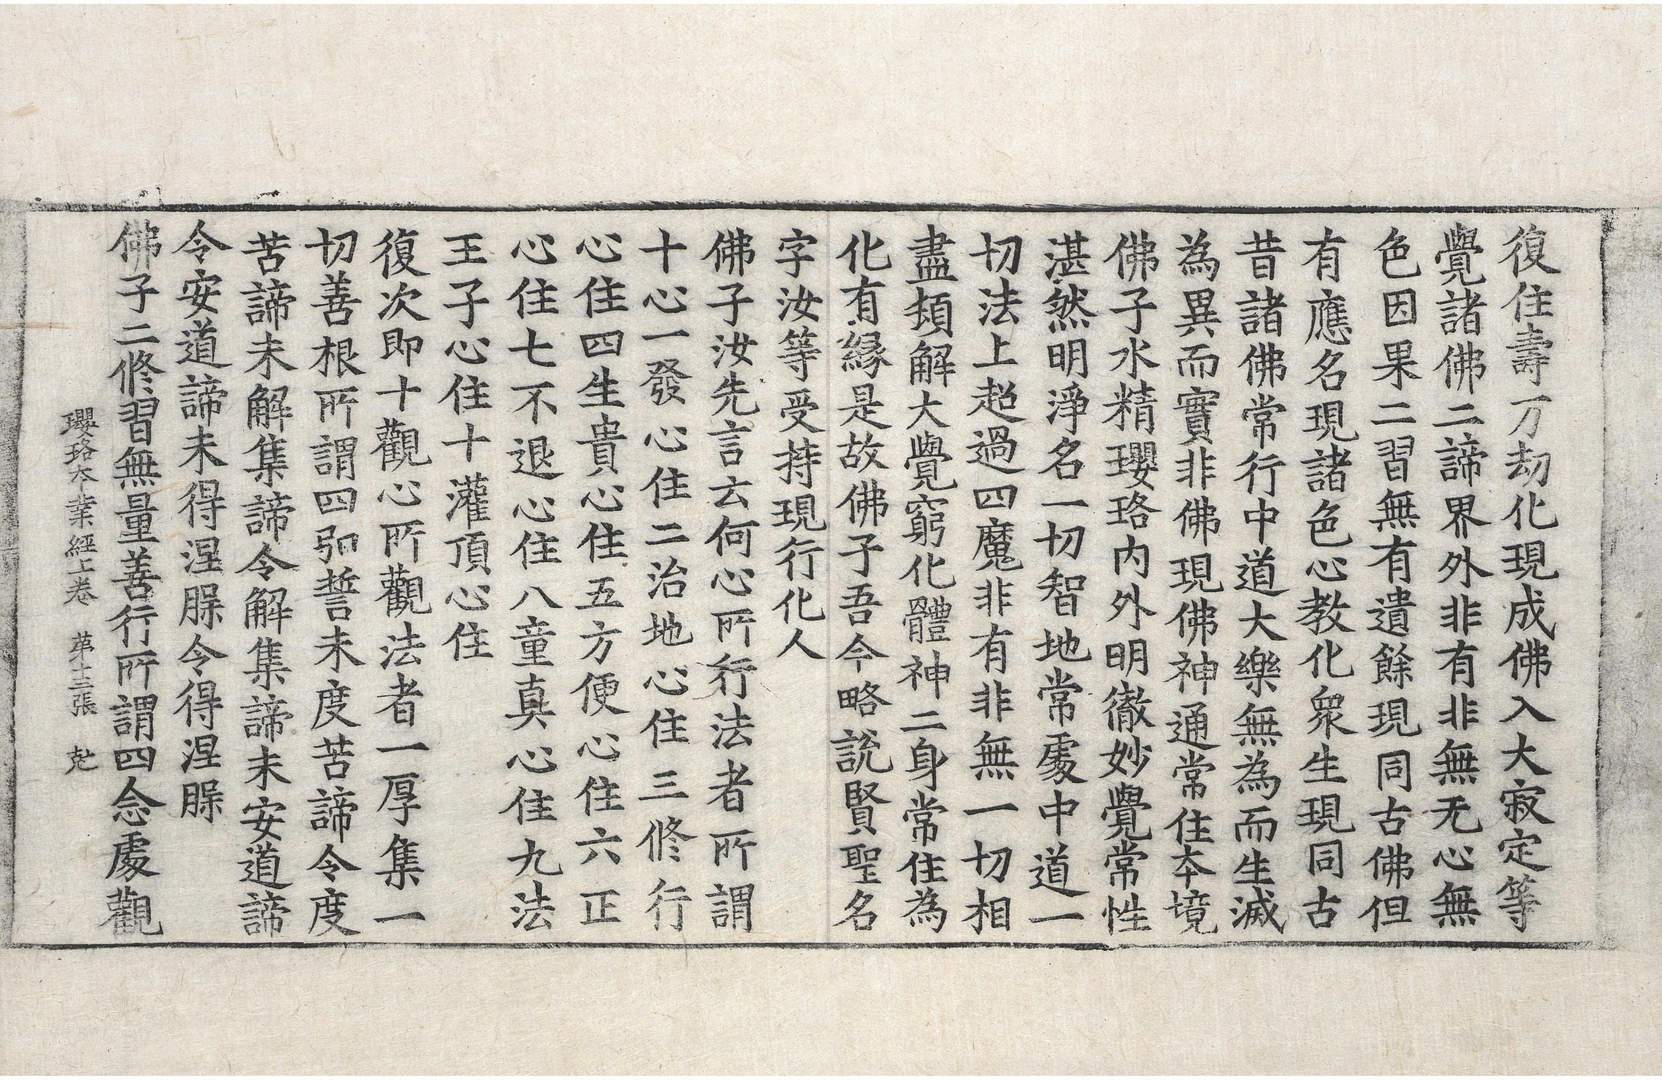 復住壽万劫化現成佛入大寂定等
覺諸佛二諦界外非有非無无心無
色因果二習無有遺餘現同古佛但
有應名現諸色心教化衆生現同古
昔諸佛常行中道大樂無為而生滅
為異而實非佛現佛神通常住本境
佛子水精瓔珞内外明徹妙覺常性
湛然明淨名一切智地常處中道一
切法上超過四魔非有非無一切相
盡頓解大覺窮化體神二身常住為
化有緣是故佛子吾今略說賢聖名
字汝等受持現行化人
佛子汝先言云何心所行法者所謂
十心一發心住二治地心住三修行
心住四生貴心住五方便心住六正
心住七不退心住八童真心住九法
王子心住十灌頂心住
復次即十觀心所觀法者一厚集一
切善根所謂四弘誓未度苦諦令度
苦諦未解集諦令解集諦未安道諦
令安道諦未得涅槃令得涅槃
佛子二修習無量善行所謂四念處觀
瓔珞本業經上卷 第十二張